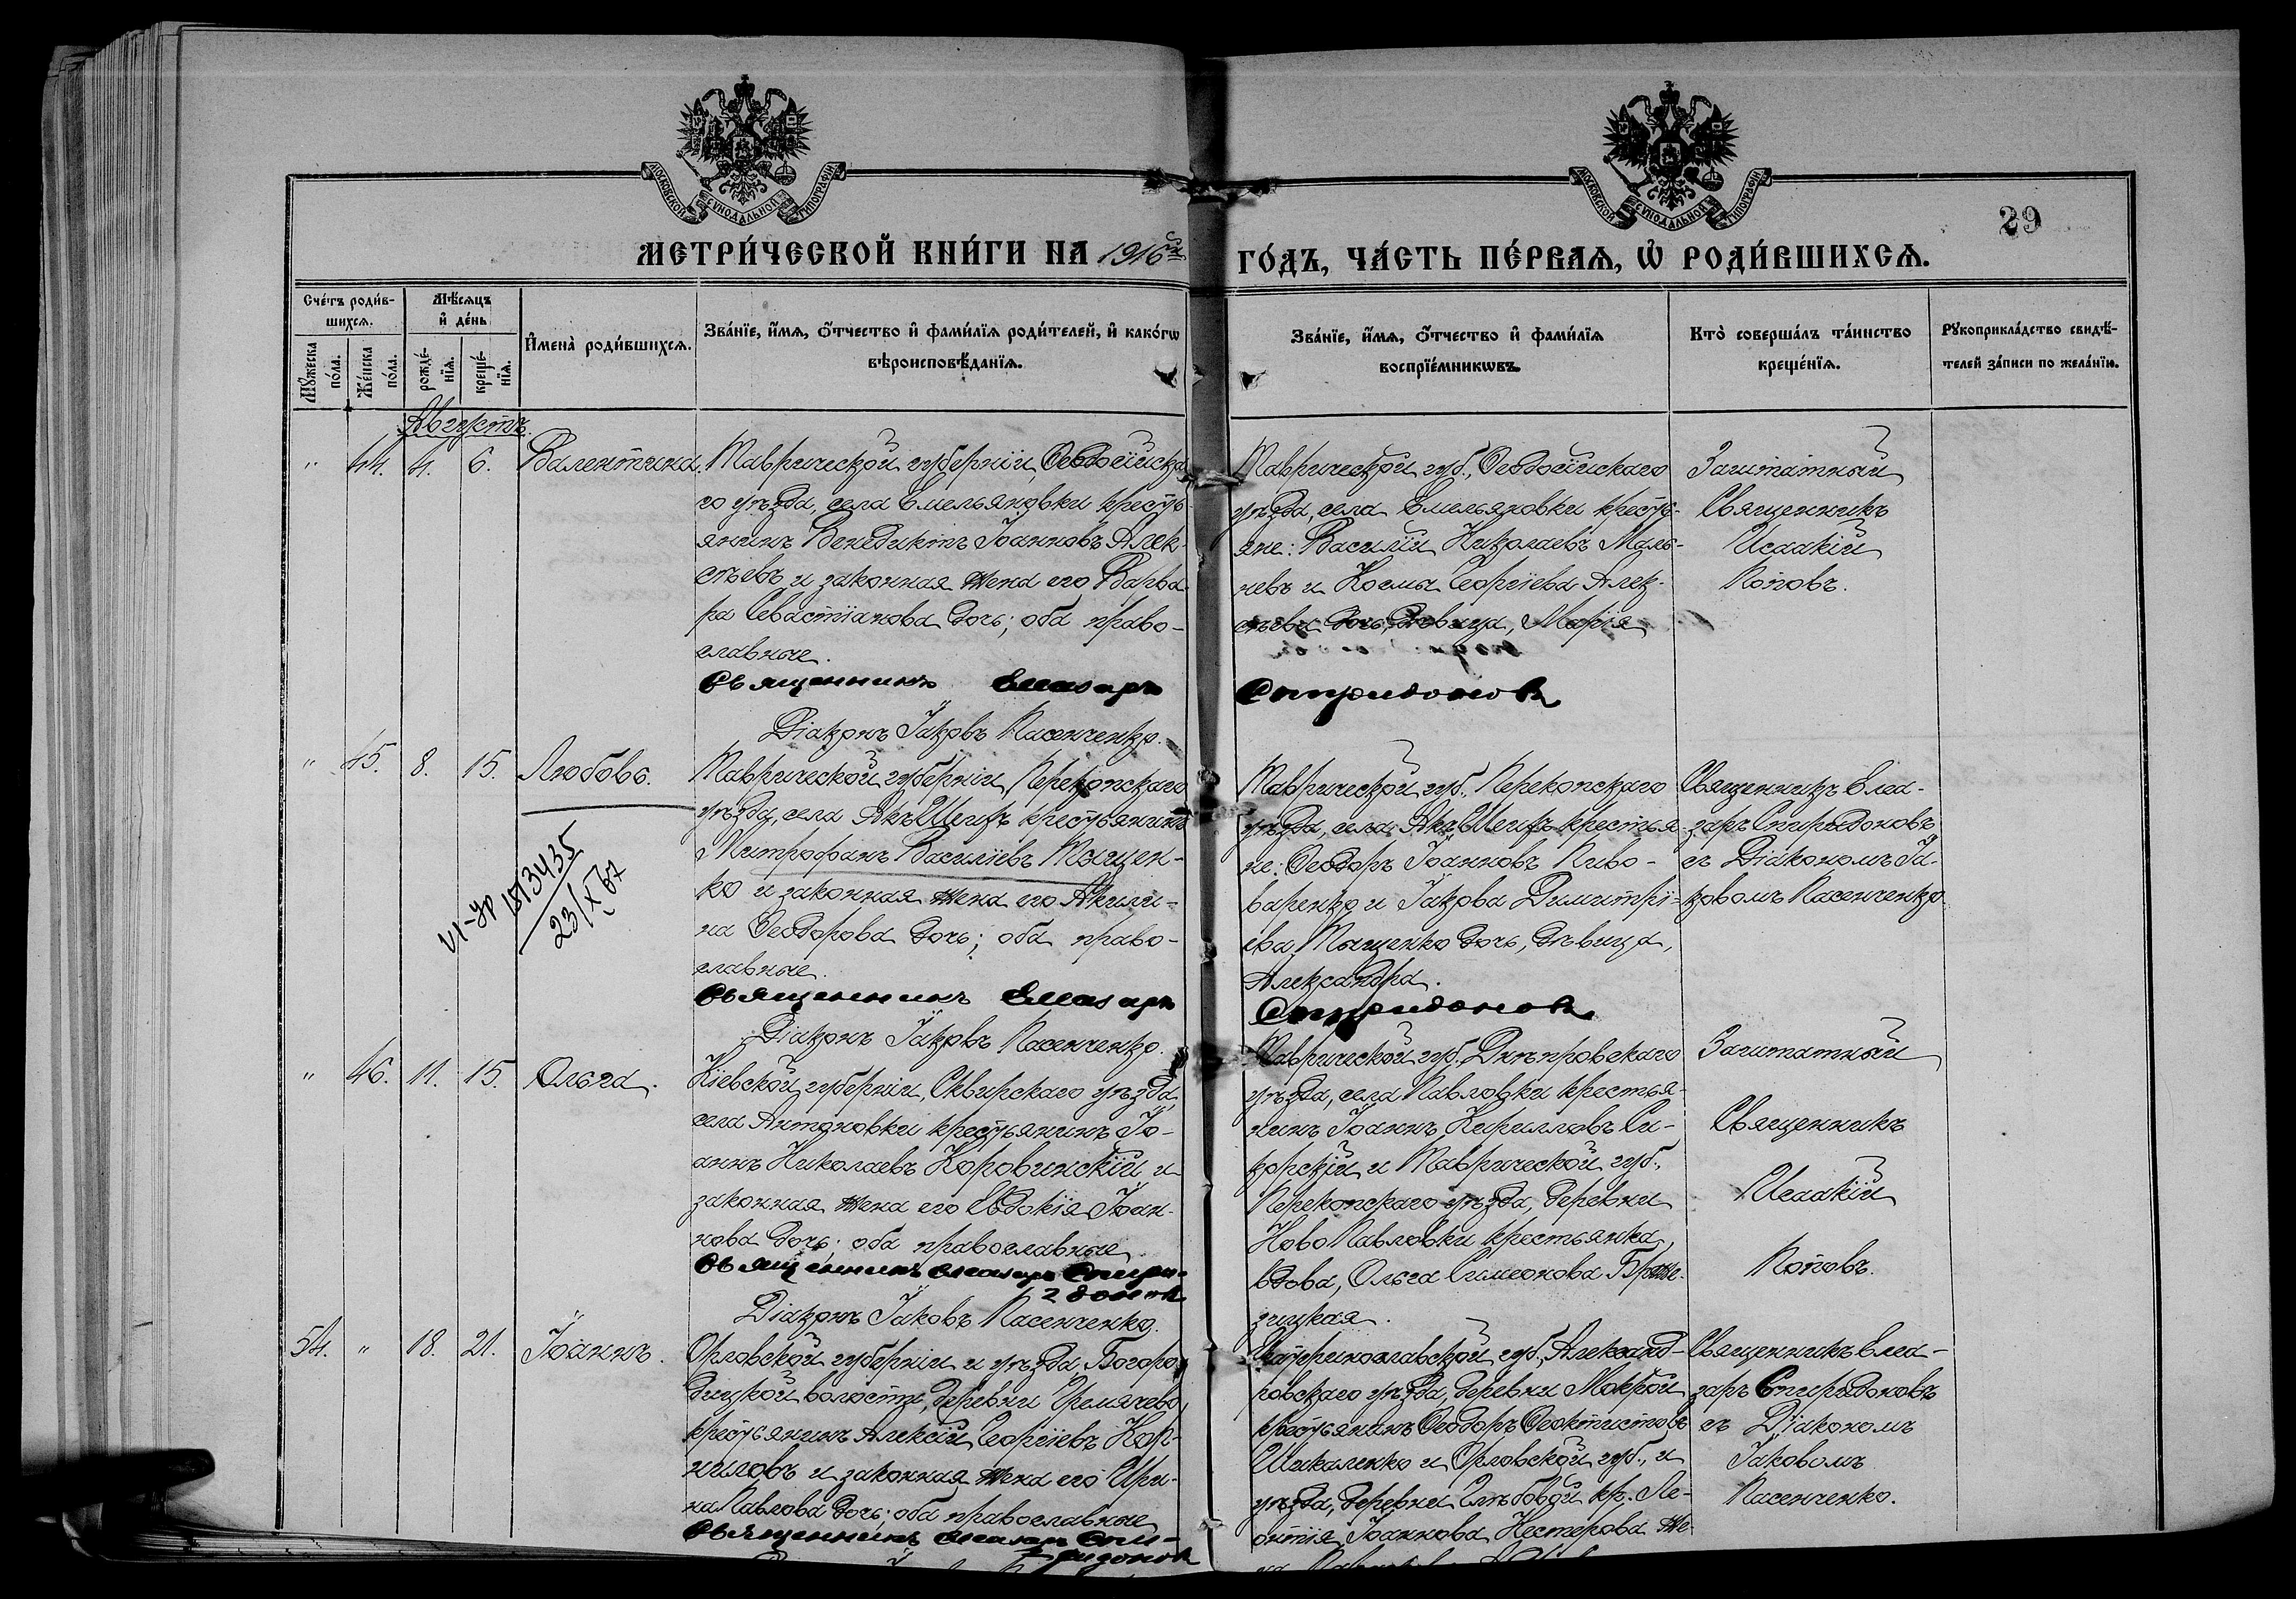 МОСКОВСКОЙ СѴНОДАЛЬНОЙ ТИПОГРАФІИ
МОСКОВСКОЙ СѴНОДАЛЬНОЙ ТИПОГРАФІИ
29
МЕТРИ́ЧЕСКОЙ КНИ́ГИ НА 1916 й
ГО́ДЪ, ЧА́СТЬ ПЕ́РВАѦ, Ѡ҆ РОДИ́ВШИХСѦ.
Сче́тъ роди́в-
шихсѧ.
Мꙋ́жеска
по́ла.
Же́нска
по́ла.
Мѣ́сѧцъ
и҆ де́нь
рожде́-
нїѧ.
креще́-
нїѧ.
И҆мена̀ роди́вшихсѧ.
Зва́нїе, и҆́мѧ, ѻ҆́тчество и҆ фами́лїѧ роди́телей, и҆ како́гѡ
вѣроисповѣ́данїѧ.
Зва́нїе, и҆́мѧ, ѻ҆́тчество и҆ фами́лїѧ
воспрїе́мникѡвъ.
Кто̀ соверша́лъ та́инство
креще́нїѧ.
Рꙋкоприкла́дство свидѣ́-
телей за́писи по жела́нїю.
Августъ.
" 44. 4. 6. Валентина.
Таврической губерніи, Ѳеодосійска-
го уѣзда, села Емельяновки кресть-
янинъ Венедиктъ Іоанновъ Алек-
сѣевъ и законная жена его Варва-
ра Севастіанова дочь; оба право-
славные.
Священникъ Елеазаръ
Діаконъ Іаковъ Пасенченко.
Таврической губ., Ѳеодосійскаго
уѣзда, села Емельяновки кресть-
яне: Василій Николаевъ Маль-
цевъ и Космы Георгіева Алек-
сѣева дочь, дѣвица, Марія
Спиридоновъ
Заштатный
Священникъ
Исаакій
Поповъ.
" 45. 8. 15. Любовь.
VI-УР 1513435
23/X 67
Таврической губерніи, Перекопскаго
уѣзда, села Акъ Шеихъ крестьянинъ
Митрофанъ Василіевъ Тыщен-
ко и законная жена его Акили-
на Ѳеодорова дочь; оба право-
славные.
Священникъ Елеазаръ
Діаконъ Іаковъ Пасенченко.
Таврической губ., Перекопскаго
уѣзда, села Акъ Шеихъ крестья-
не: Ѳеодоръ Іоанновъ Пиво-
варенко и Іакова Димитрі-
ева Тыщенко дочь, дѣвица,
Александра.
Спиридоновъ
Священникъ Елеа-
заръ Спиридоновъ
съ Діакономъ Іа-
ковомъ Пасенченко
" 46. 11. 15. Ольга.
Кіевской губерніи, Сквирскаго уѣзда,
села Антоновки крестьянинъ Іо-
аннъ Николаевъ Коровинскій и
законная жена его Евдокія Іоан-
нова дочь; оба православные.
Священникъ Елеазаръ Спири-
доновъ
Діаконъ Іаковъ Пасенченко.
Таврической губ., Днѣпровскаго
уѣзда, села Павловки крестья-
нинъ Іоаннъ Кирилловъ Си-
корскій и Таврической губ.,
Перекопскаго уѣзда, деревни
Ново Павловки крестьянка,
вдова, Ольга Симеонова Бржe-
зицкая.
Заштатный
Священникъ
Исаакій
Поповъ.
54. " 18. 21. Іоаннъ.
Орловской губерніи и уѣзда Богоро-
дицкой волости, деревни Гремячево,
крестьянинъ Алексій Георгіевъ Кор-
ниловъ и законная жена его Ири-
на Павлова дочь; оба православные
Священникъ Елеазаръ Спи-
ридоновъ
Екатеринославской губ., Александ-
ровскаго уѣзда, деревни Мокрой
крестьянинъ Ѳеодоръ Ѳеоктистовъ
Шикаленко и Орловской губ., и
уѣзда, деревни Глѣбовой кр. Ле-
онтія Іоаннова Нестерова же-
Священникъ Елеа-
заръ Спиридоновъ
съ Діакономъ
Іаковомъ
Пасенченко.